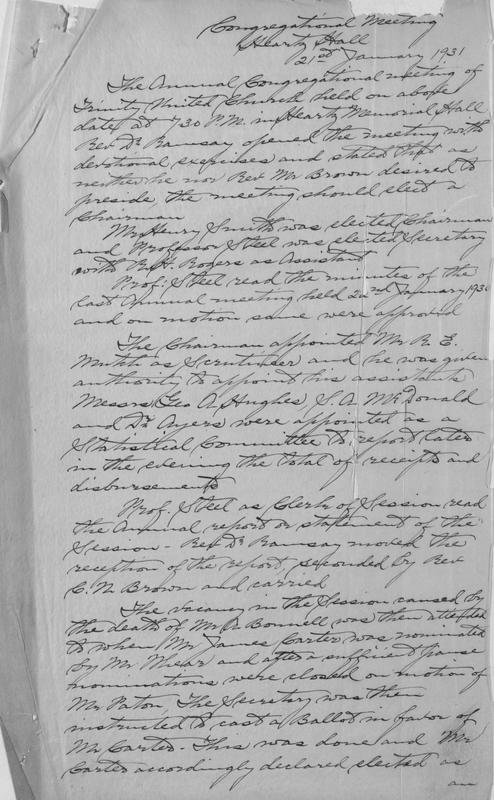 Congregational Meeting
Heartz Hall
21st January 1931
The Annual Congregational meeting of
Trinity United Church held on above
date at 730 P.M. in Heartz Memorial Hall
Rev Dr Ramsay opened the meeting with
devotional exercises and stated that as
neither he nor Rev Mr Brown desired to
preside the meeting should elect a
Chairman
Mr Henry Smith was elected Chairman
and Professor Steel was elected Secretary
with R. H. Rogers as Assistant
Prof. Steel read the minutes of the
last Annual meeting held 22nd January 1930
and on motion same were approved
The Chairman appointed Mr R. E.
Mutch as Scrutineer and he was given
authority to appoint his assistants
Messrs Geo A. Hughes, S. A. McDonald
and Dr Ayers were appointed as a
Statistical Committee to report later
in the evening the total of receipts and
disbursements
Prof. Steel as Clerk of Session read
the Annual report or statement of the
Session - Rev Dr Ramsay moved the
reception of the report, seconded by Rev
C. N. Brown and carried
The vacancy in the Session caused by
the death of Mr Bonnell was then attended
to when Mr James Carter was nominated
by Mr Whear and after a sufficient pause
nominations were closed on motion of
Mr Paton, The Secretary was then
instructed to cast a Ballot in favor of
Mr Carter - This was done and Mr
Carter accordingly declared elected as
an